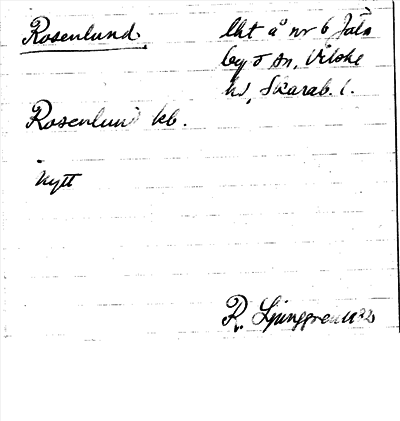 Rosenlund
lht å nr 6 Jäla
by o sn, Vilske
hd, Skarab. l.
Rosenlund kb.
nytt
R. Ljunggren 1922